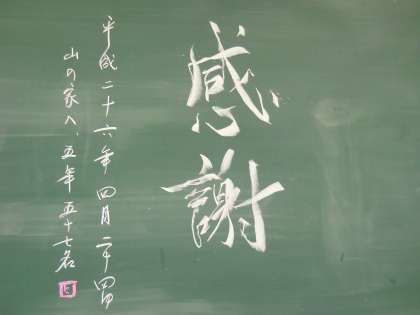 感謝
平成二十六年 四月二十四日
山の家へ、五年 五十七名